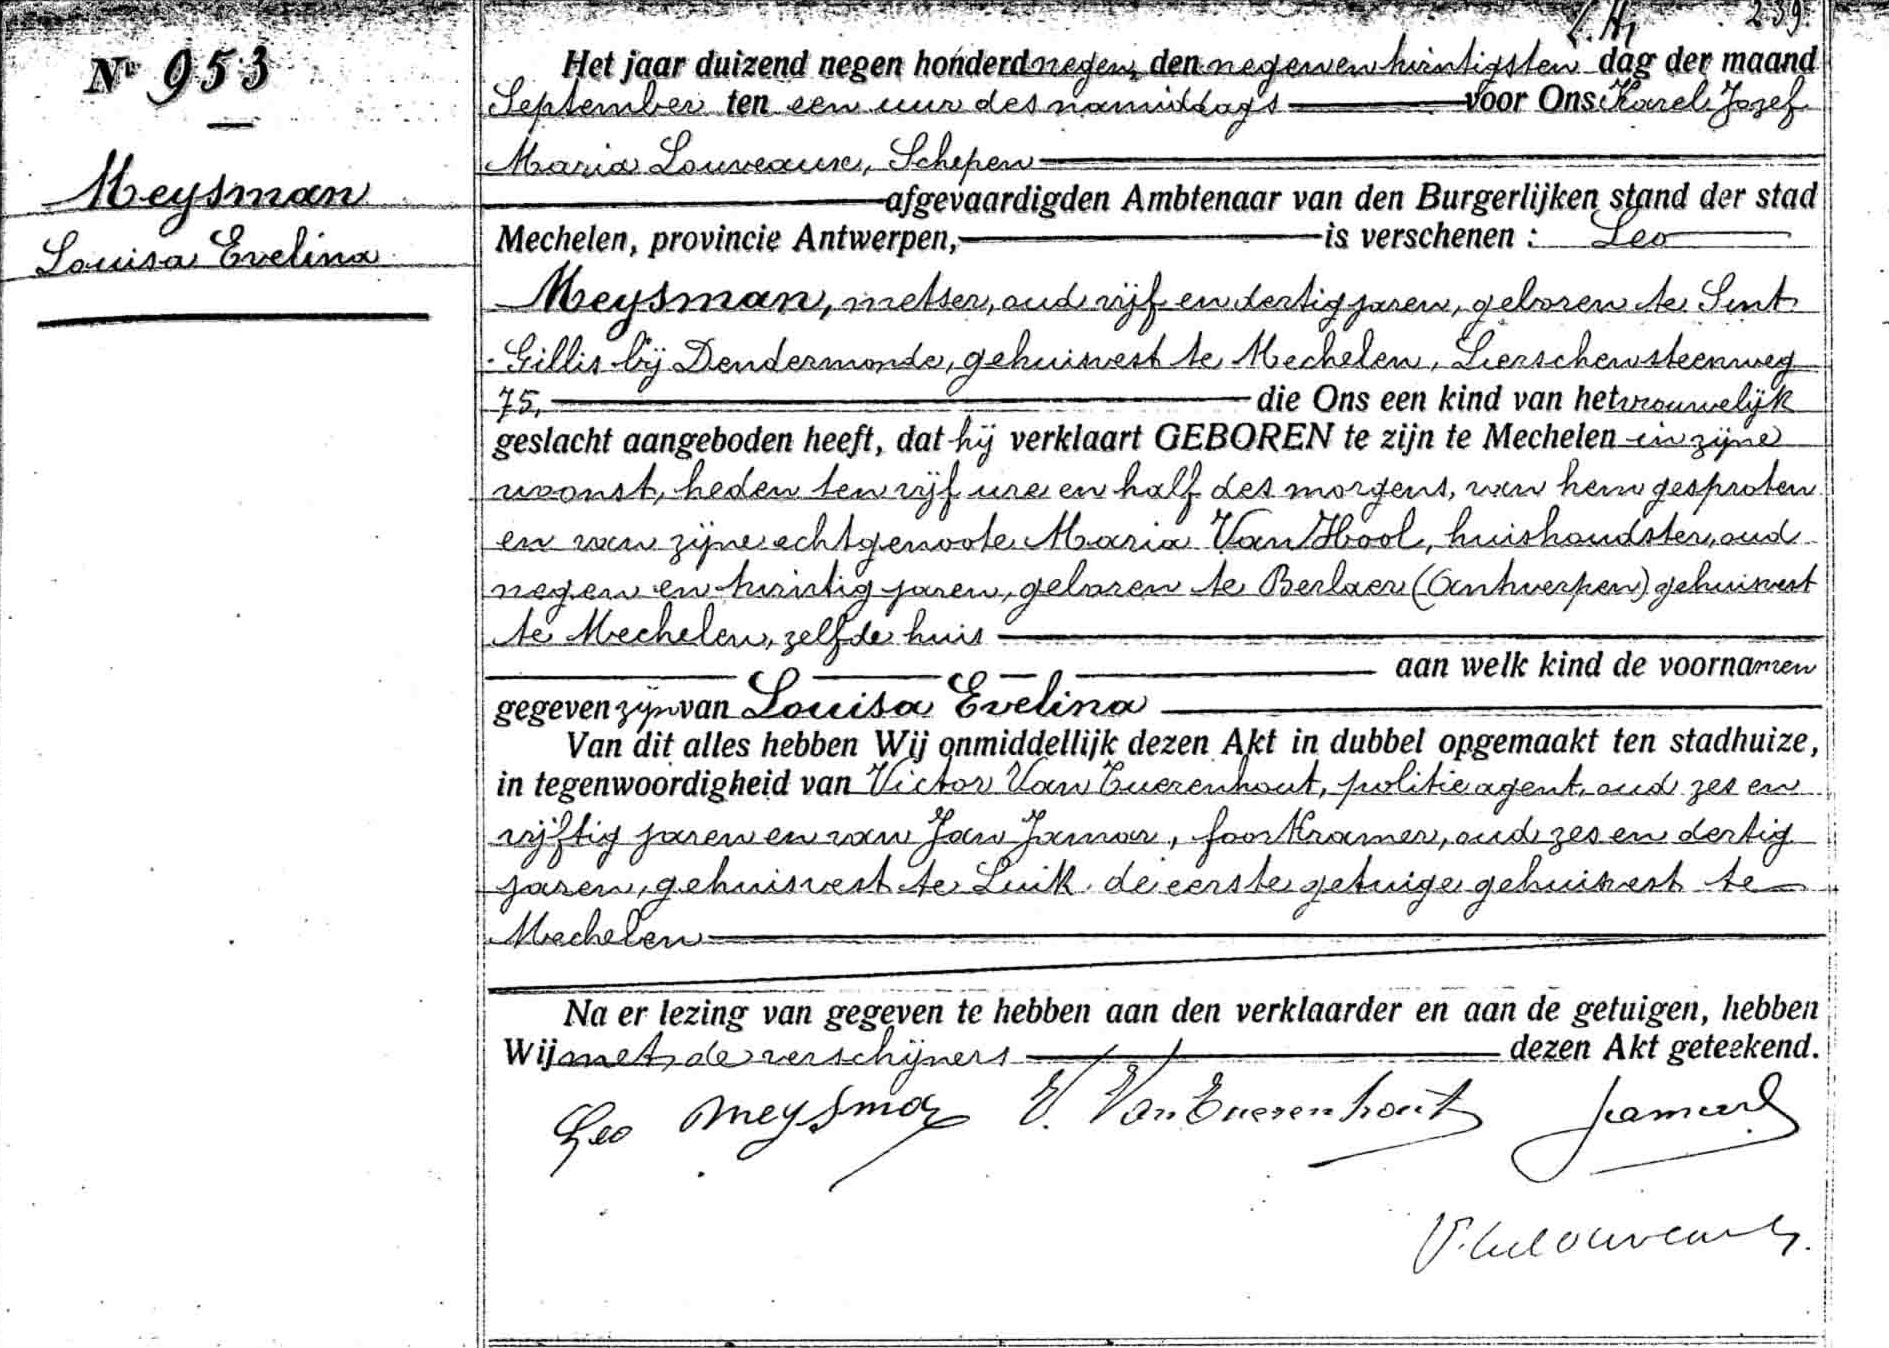 239.
Nr 953
Meysman
Louisa Evelina
Het jaar duizend negen honderd negen, den negenen twintigsten dag der maand
September ten een uur des namiddags voor Ons Karel Jozef
Maria Louveaux, Schepen
afgevaardigden Ambtenaar van den Burgerlijken stand der stad
Mechelen, provincie Antwerpen, is verschenen : Leo
Meysman, metser, oud vijf en dertig jaren, geboren te Sint
Gillis bij Dendermonde, gehuisvest te Mechelen, Lierschensteenweg
75, die Ons een kind van het vrouwelijk
geslacht aangeboden heeft, dat hij verklaart GEBOREN te zijn te Mechelen in zijne
woonst, heden ten vijf ure en half des morgens, van hem gesproten
en van zijne echtgenoote Maria Van Hool, huishoudster, oud
negen en twintig jaren, geboren te Berlaer (Antwerpen) gehuisvest
te Mechelen, zelfde huis
aan welk kind de voornamen
gegeven zijn van Louisa Evelina
Van dit alles hebben Wij onmiddellijk dezen Akt in dubbel opgemaakt ten stadhuize,
in tegenwoordigheid van Victor Van Cuerenhout, politieagent, oud zes en
vijftig jaren en van Jan Jamar, foorkramer, oud zes en dertig
jaren, gehuisvest te Luik de eerste getuige gehuisvest te
Mechelen
Na er lezing van gegeven te hebben aan den verklaarder en aan de getuigen, hebben
Wij met de verschijners dezen Akt geteekend.
Leo Meysman V. Van Cuerenhout Jamar